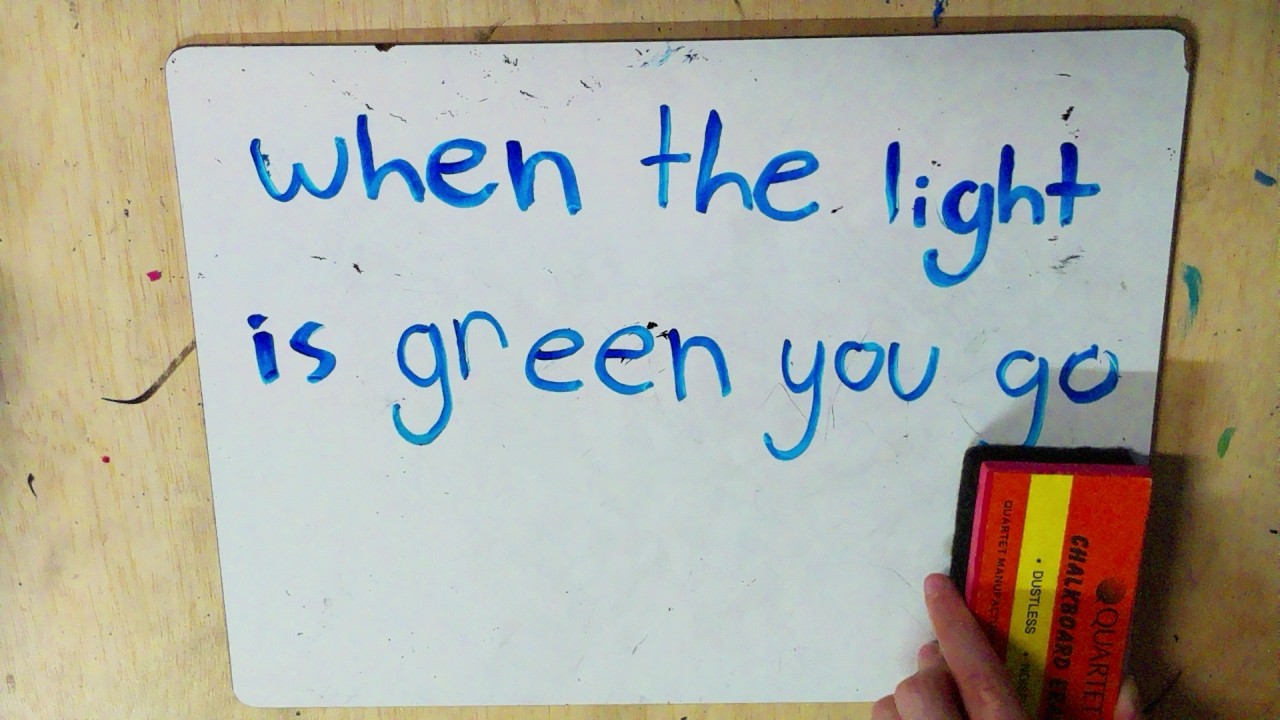 when the light
is green you go
QUARTET
CHALKBOARD
• DUSTLESS
QUARTET